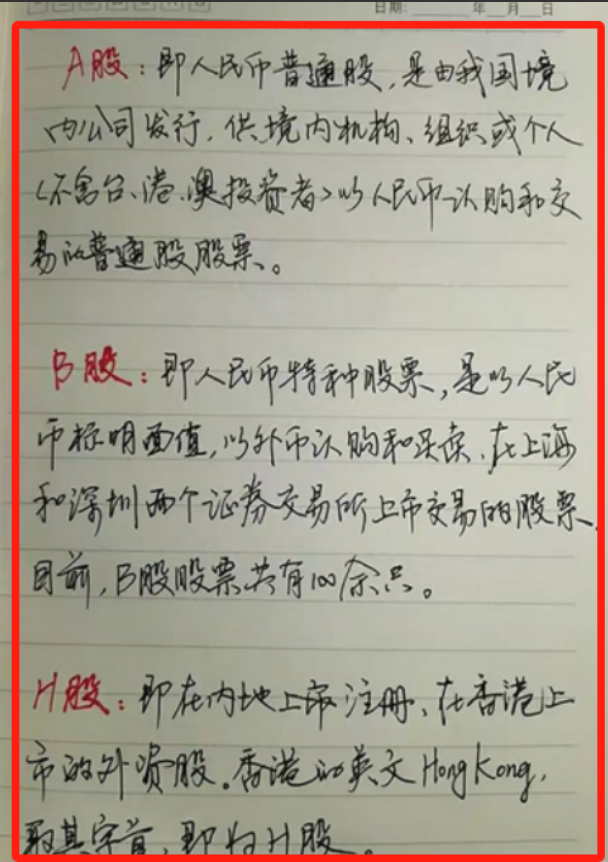 日期: 年 月 日
A股：即人民币普通股，是由我国境
内公司发行，供境内机构、组织或个人
（不含台、港、澳投资者）以人民币认购和交
易的普通股股票。
B股：即人民币特种股票，是以人民
币标明面值，以外币认购和买卖，在上海
和深圳两个证券交易所上市交易的股票，
目前，B股股票共有100余只。
H股：即在内地上市注册、在香港上
市的外资股。香港的英文HongKong，
取其字首，即为H股。